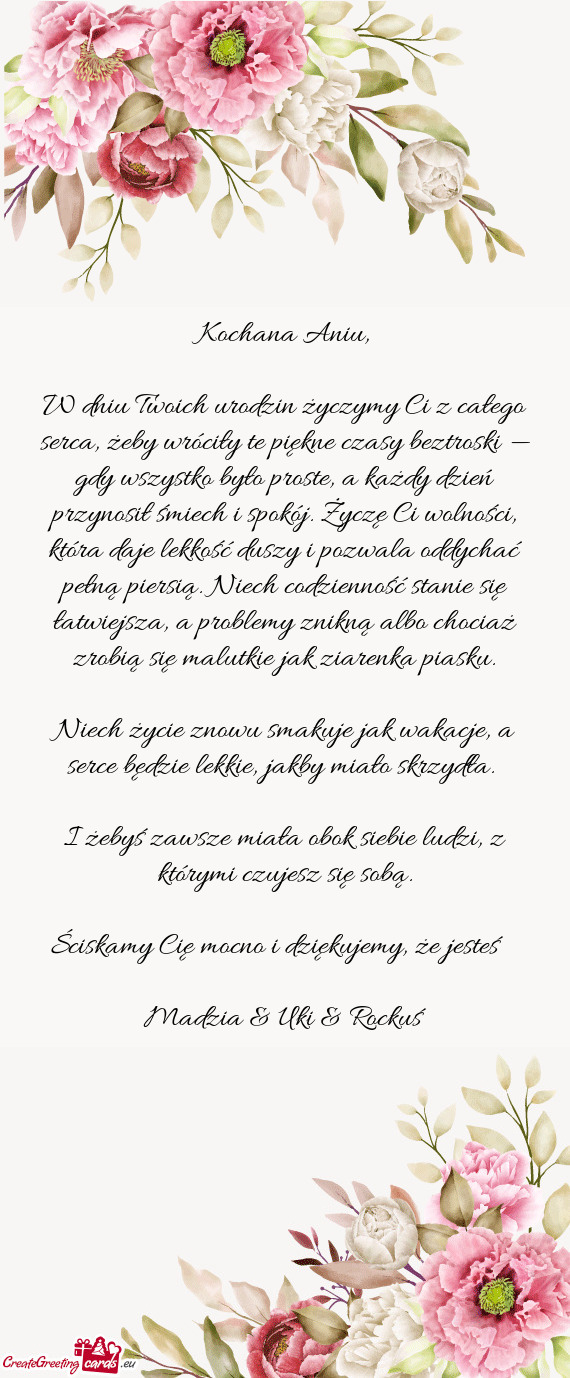 Kochana Aniu,
W dniu Twoich urodzin życzymy Ci z całego
serca, żeby wróciły te piękne czasy beztroski —
gdy wszystko było proste, a każdy dzień
przynosił śmiech i spokój. Życzę Ci wolności,
która daje lekkość duszy i pozwala oddychać
pełną piersią. Niech codzienność stanie się
łatwiejsza, a problemy znikną albo chociaż
zrobią się malutkie jak ziarenka piasku.
Niech życie znowu smakuje jak wakacje, a
serce będzie lekkie, jakby miało skrzydła.
I żebyś zawsze miała obok siebie ludzi, z
którymi czujesz się sobą.
Ściskamy Cię mocno i dziękujemy, że jesteś
Madzia & Uki & Rockuś
CreateGreeting cards .eu